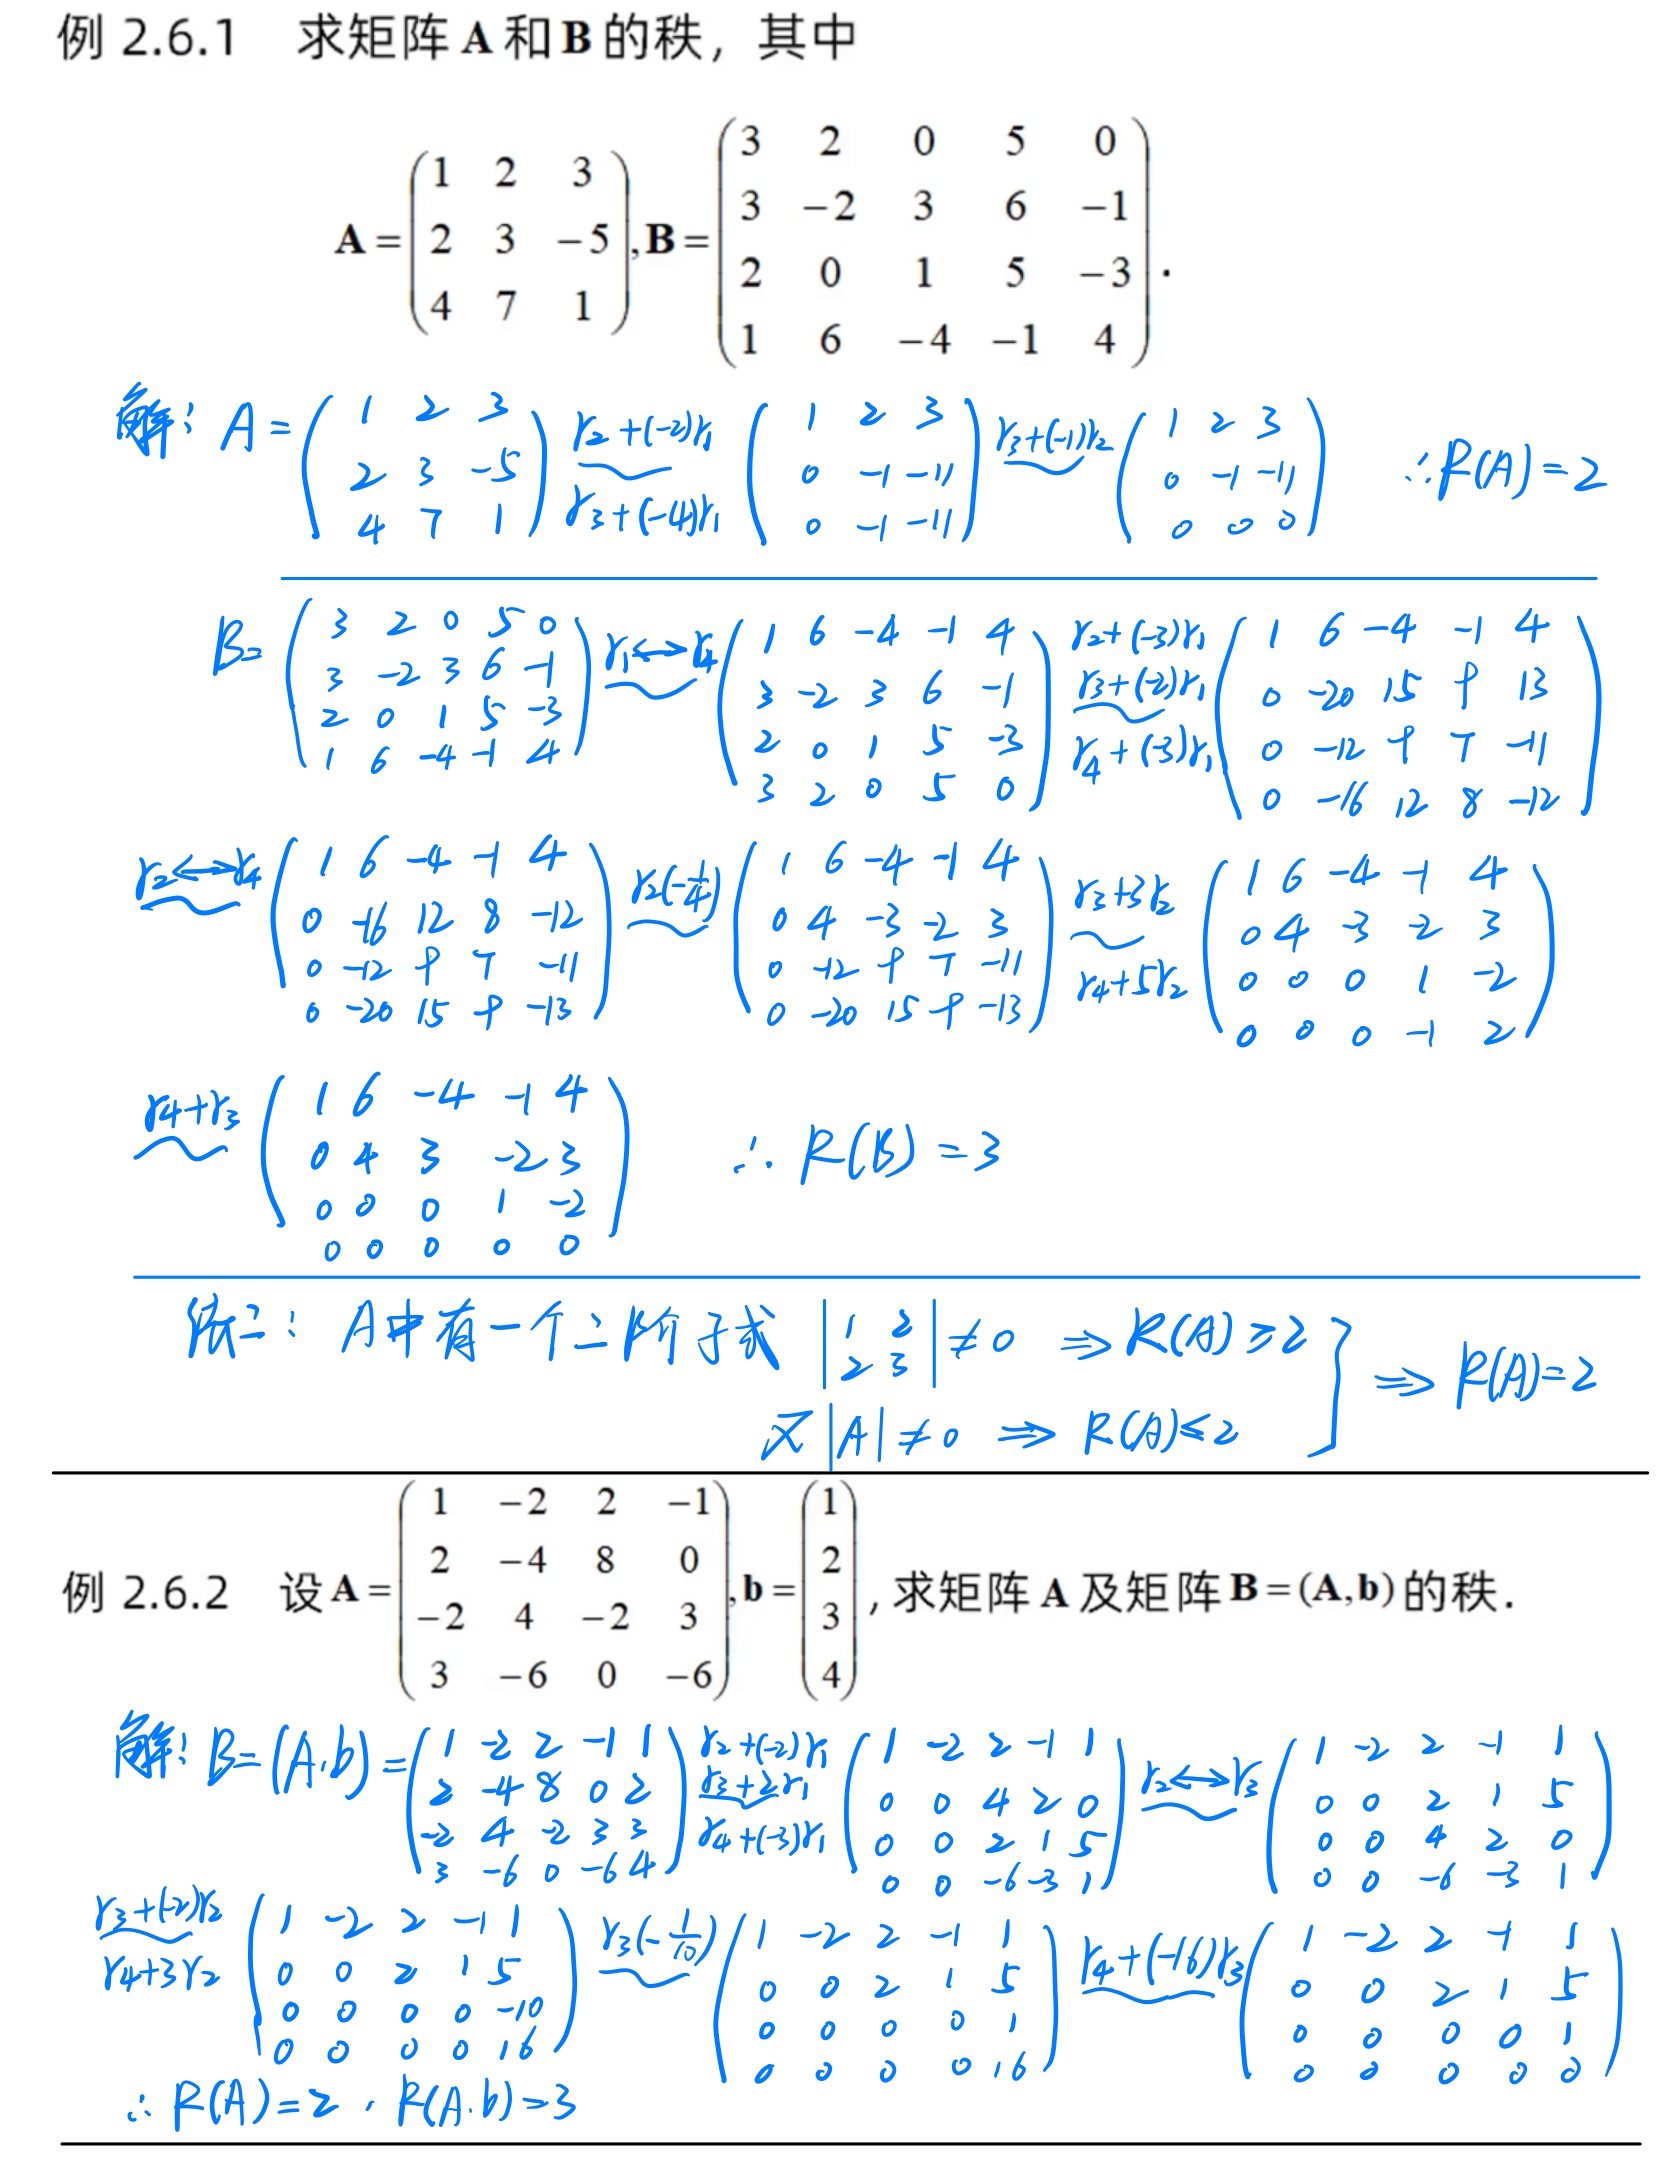 例 2.6.1 求矩阵 A 和 B 的秩，其中
A = \begin{pmatrix} 1 & 2 & 3 \\ 2 & 3 & -5 \\ 4 & 7 & 1 \end{pmatrix}, B = \begin{pmatrix} 3 & 2 & 0 & 5 & 0 \\ 3 & -2 & 3 & 6 & -1 \\ 2 & 0 & 1 & 5 & -3 \\ 1 & 6 & -4 & -1 & 4 \end{pmatrix}.
解: A = \begin{pmatrix} 1 & 2 & 3 \\ 2 & 3 & -5 \\ 4 & 7 & 1 \end{pmatrix} \underset{r_3+(-4)r_1}{\overset{r_2+(-2)r_1}{\sim}} \begin{pmatrix} 1 & 2 & 3 \\ 0 & -1 & -11 \\ 0 & -1 & -11 \end{pmatrix} \overset{r_3+(-1)r_2}{\sim} \begin{pmatrix} 1 & 2 & 3 \\ 0 & -1 & -11 \\ 0 & 0 & 0 \end{pmatrix} ∴R(A)=2
B= \begin{pmatrix} 3 & 2 & 0 & 5 & 0 \\ 3 & -2 & 3 & 6 & -1 \\ 2 & 0 & 1 & 5 & -3 \\ 1 & 6 & -4 & -1 & 4 \end{pmatrix} \overset{r_1↔r_4}{\sim} \begin{pmatrix} 1 & 6 & -4 & -1 & 4 \\ 3 & -2 & 3 & 6 & -1 \\ 2 & 0 & 1 & 5 & -3 \\ 3 & 2 & 0 & 5 & 0 \end{pmatrix} \underset{r_4+(-3)r_1}{\overset{r_2+(-3)r_1, r_3+(-2)r_1}{\sim}} \begin{pmatrix} 1 & 6 & -4 & -1 & 4 \\ 0 & -20 & 15 & 9 & 13 \\ 0 & -12 & 9 & 7 & -11 \\ 0 & -16 & 12 & 8 & -12 \end{pmatrix}
\overset{r_2↔r_4}{\sim} \begin{pmatrix} 1 & 6 & -4 & -1 & 4 \\ 0 & -16 & 12 & 8 & -12 \\ 0 & -12 & 9 & 7 & -11 \\ 0 & -20 & 15 & 9 & -13 \end{pmatrix} \overset{r_2(-\frac{1}{4})}{\sim} \begin{pmatrix} 1 & 6 & -4 & -1 & 4 \\ 0 & 4 & -3 & -2 & 3 \\ 0 & -12 & 9 & 7 & -11 \\ 0 & -20 & 15 & 9 & -13 \end{pmatrix} \underset{r_4+5r_2}{\overset{r_3+3r_2}{\sim}} \begin{pmatrix} 1 & 6 & -4 & -1 & 4 \\ 0 & 4 & -3 & -2 & 3 \\ 0 & 0 & 0 & 1 & -2 \\ 0 & 0 & 0 & -1 & 2 \end{pmatrix}
\overset{r_4+r_3}{\sim} \begin{pmatrix} 1 & 6 & -4 & -1 & 4 \\ 0 & 4 & 3 & -2 & 3 \\ 0 & 0 & 0 & 1 & -2 \\ 0 & 0 & 0 & 0 & 0 \end{pmatrix} ∴ R(B)=3
法二: A中有一个二阶子式 \begin{vmatrix} 1 & 2 \\ 2 & 3 \end{vmatrix} ≠0 ⇒ R(A)≥2
又|A|≠0 ⇒ R(A)≤2 } ⇒ R(A)=2
例 2.6.2 设 A = \begin{pmatrix} 1 & -2 & 2 & -1 \\ 2 & -4 & 8 & 0 \\ -2 & 4 & -2 & 3 \\ 3 & -6 & 0 & -6 \end{pmatrix}, b = \begin{pmatrix} 1 \\ 2 \\ 3 \\ 4 \end{pmatrix}, 求矩阵 A 及矩阵 B = (A,b) 的秩.
解: B=(A,b)= \begin{pmatrix} 1 & -2 & 2 & -1 & 1 \\ 2 & -4 & 8 & 0 & 2 \\ -2 & 4 & -2 & 3 & 3 \\ 3 & -6 & 0 & -6 & 4 \end{pmatrix} \underset{r_4+(-3)r_1}{\overset{r_2+(-2)r_1, r_3+2r_1}{\sim}} \begin{pmatrix} 1 & -2 & 2 & -1 & 1 \\ 0 & 0 & 4 & 2 & 0 \\ 0 & 0 & 2 & 1 & 5 \\ 0 & 0 & -6 & -3 & 1 \end{pmatrix} \overset{r_2↔r_3}{\sim} \begin{pmatrix} 1 & -2 & 2 & -1 & 1 \\ 0 & 0 & 2 & 1 & 5 \\ 0 & 0 & 4 & 2 & 0 \\ 0 & 0 & -6 & -3 & 1 \end{pmatrix}
\underset{r_4+3r_2}{\overset{r_3+(-2)r_2}{\sim}} \begin{pmatrix} 1 & -2 & 2 & -1 & 1 \\ 0 & 0 & 2 & 1 & 5 \\ 0 & 0 & 0 & 0 & -10 \\ 0 & 0 & 0 & 0 & 16 \end{pmatrix} \overset{r_3(-\frac{1}{10})}{\sim} \begin{pmatrix} 1 & -2 & 2 & -1 & 1 \\ 0 & 0 & 2 & 1 & 5 \\ 0 & 0 & 0 & 0 & 1 \\ 0 & 0 & 0 & 0 & 16 \end{pmatrix} \overset{r_4+(-16)r_3}{\sim} \begin{pmatrix} 1 & -2 & 2 & -1 & 1 \\ 0 & 0 & 2 & 1 & 5 \\ 0 & 0 & 0 & 0 & 1 \\ 0 & 0 & 0 & 0 & 0 \end{pmatrix}
∴ R(A)=2, R(A,b)=3